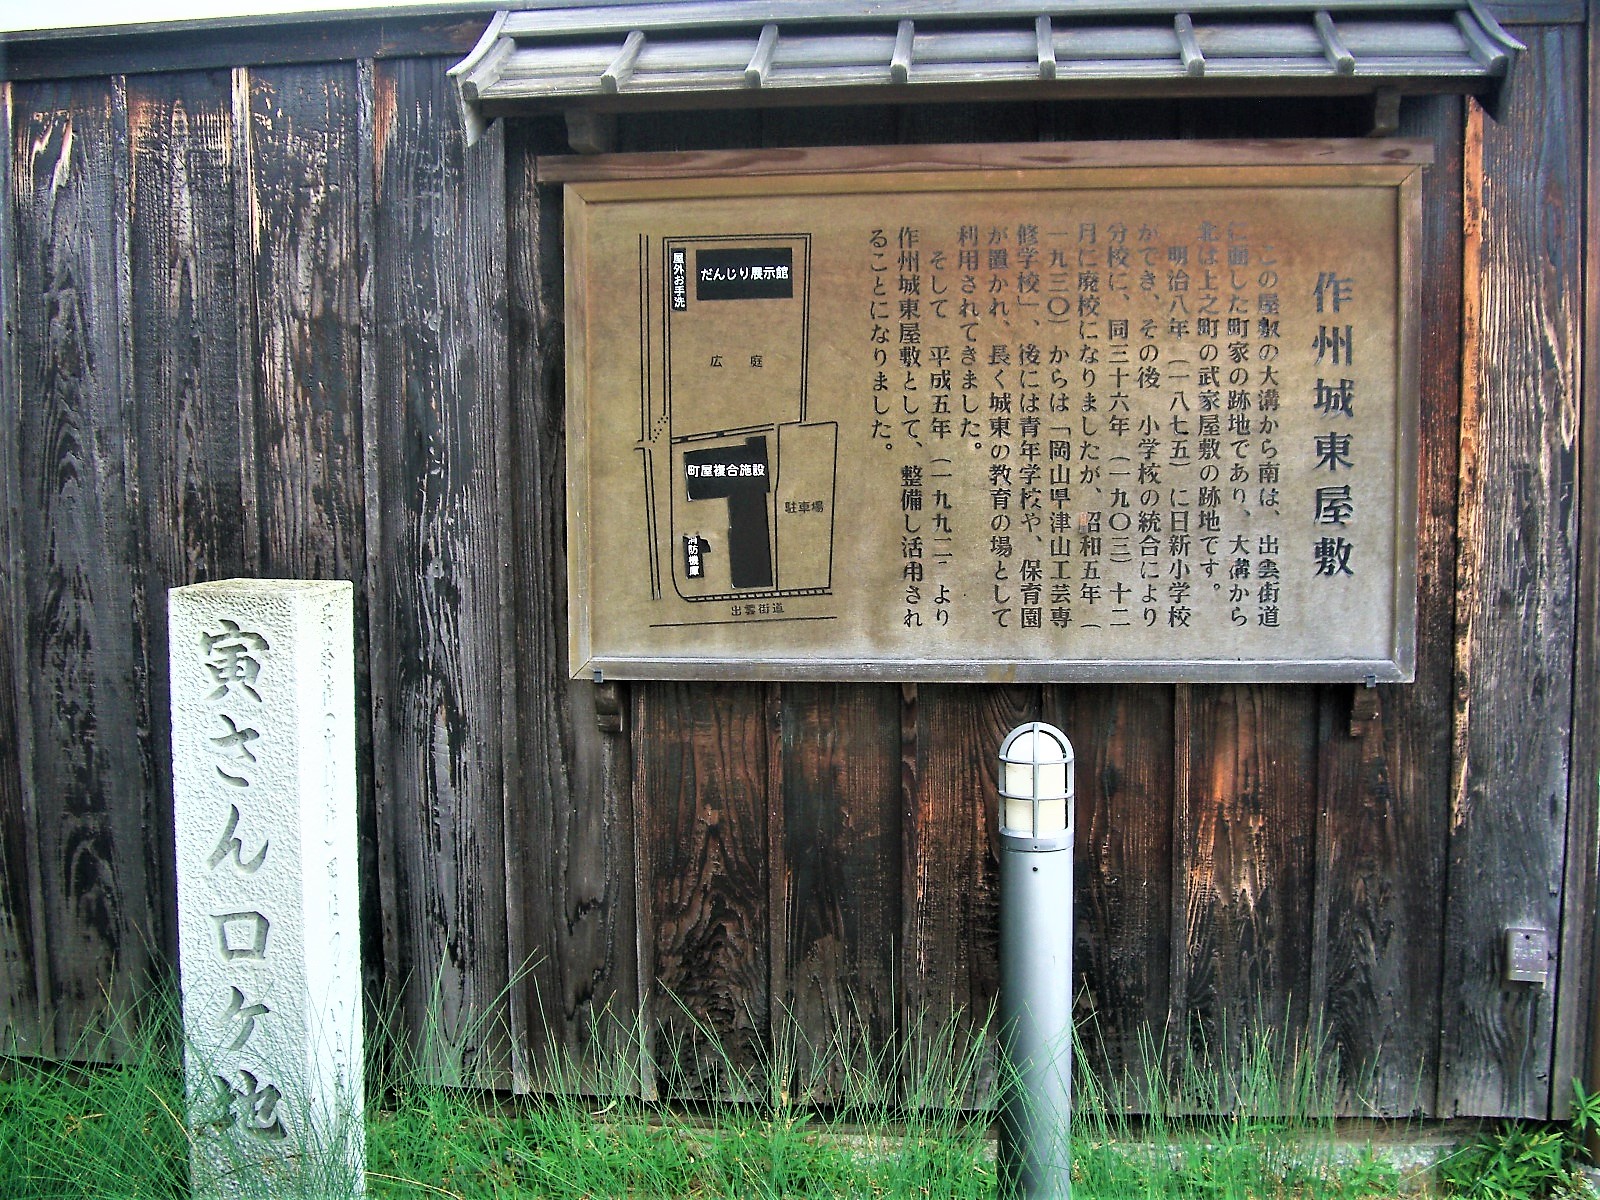 作州城東屋敷
この屋敷の大溝から南は、出雲街道
に面した町家の跡地であり、大溝から
北は上之町の武家屋敷の跡地です。
明治八年（一八七五）に日新小学校
ができ、その後 小学校の統合により
分校に、同三十六年（一九〇三）十二
月に廃校になりましたが、昭和五年（
一九三〇）からは「岡山県津山工芸専
修学校」、後には青年学校や、保育園
が置かれ、長く城東の教育の場として
利用されてきました。
そして 平成五年（一九九二）より
作州城東屋敷として、整備し活用され
ることになりました。
だんじり展示館
屋外お手洗
広庭
町屋複合施設
駐車場
消防機庫
出雲街道
寅さんロケ地